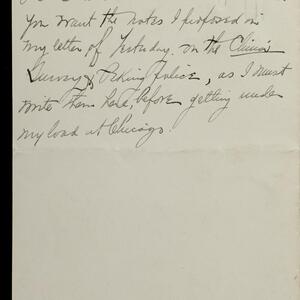 you want the notes I proposed in
my letter of Yesterday. on the
Survey & Peking Police, as I must
write them here, before getting under
my load at Chicago.